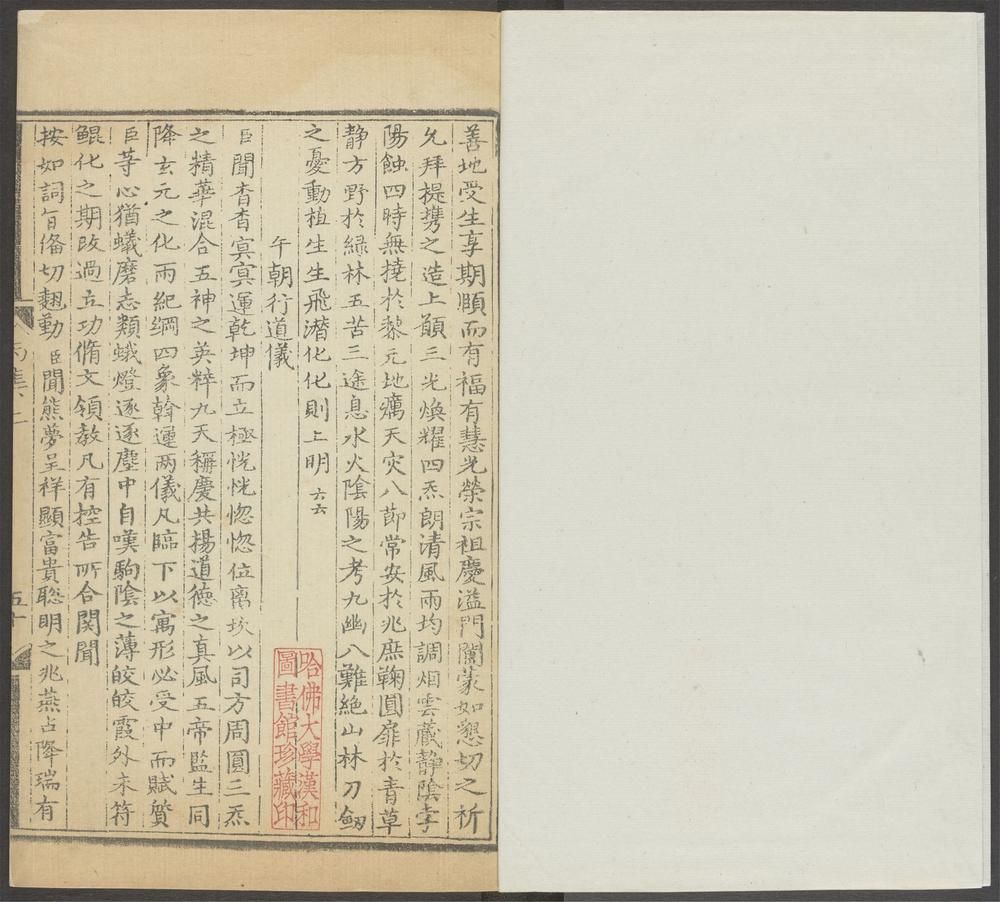 善地受生享期頤而有福有慧光榮宗祖慶溢門闌蒙如懇切之祈
允拜提携之造上願三光煥耀四炁朗清風雨均調烟雲藏靜陰孛
陽蝕四時無撓於黎元地癘天灾八節常安於兆庶鞠圓扉於青草
静方野於緑林五苦三途息水火陰陽之考九幽八難絶山林刀劔
之憂動植生生飛潛化化則上明 六六
午朝行道儀
臣聞杳杳冥冥運乾坤而立極恍恍惚惚位离坎以司方周圓三炁
之精華混合五神之英粹九天稱慶共揚道德之真風五帝監生同
降玄元之化雨紀綱四象斡運两儀凡臨下以寓形必受中而賦質
臣等心猶蟻磨志類蛾燈逐逐塵中自嘆駒陰之薄皎皎霞外未符
鯤化之期改過立功脩文領教凡有控告所合関聞
按如詞旨俻切翹勤臣聞熊夢呈祥顯富貴聡明之兆燕占降瑞有
五十
哈佛大學漢和
圖書館珍藏印